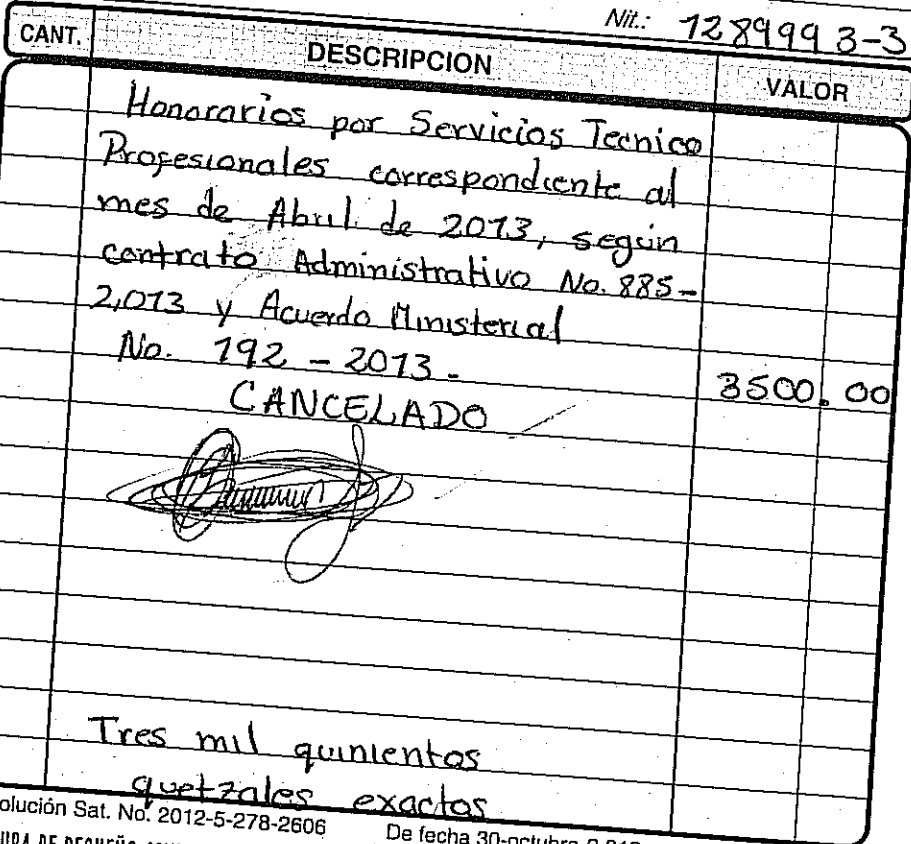 Nit.: 1289993-3
CANT. DESCRIPCION VALOR
Honorarios por Servicios Tecnico
Profesionales correspondiente al
mes de Abril de 2013, según
contrato Administrativo No. 885-
2,013 y Acuerdo Ministerial
No. 192 - 2013.
3500.00
CANCELADO
Tres mil quinientos
quetzales exactos
olución Sat. No. 2012-5-278-2606 De fecha 30-octubre
DE PEQUEÑO